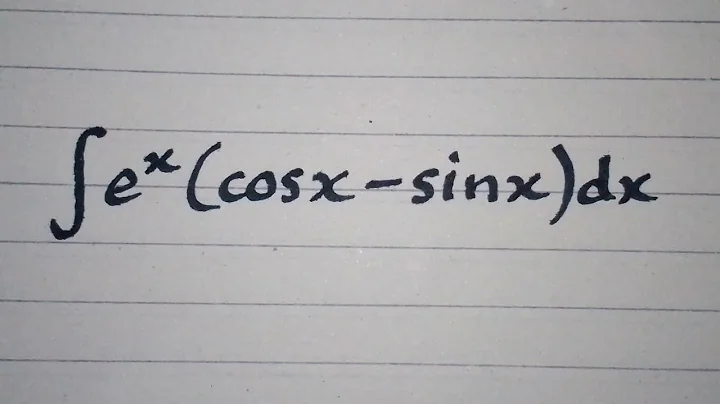 ∫eˣ(cosx-sinx)dx